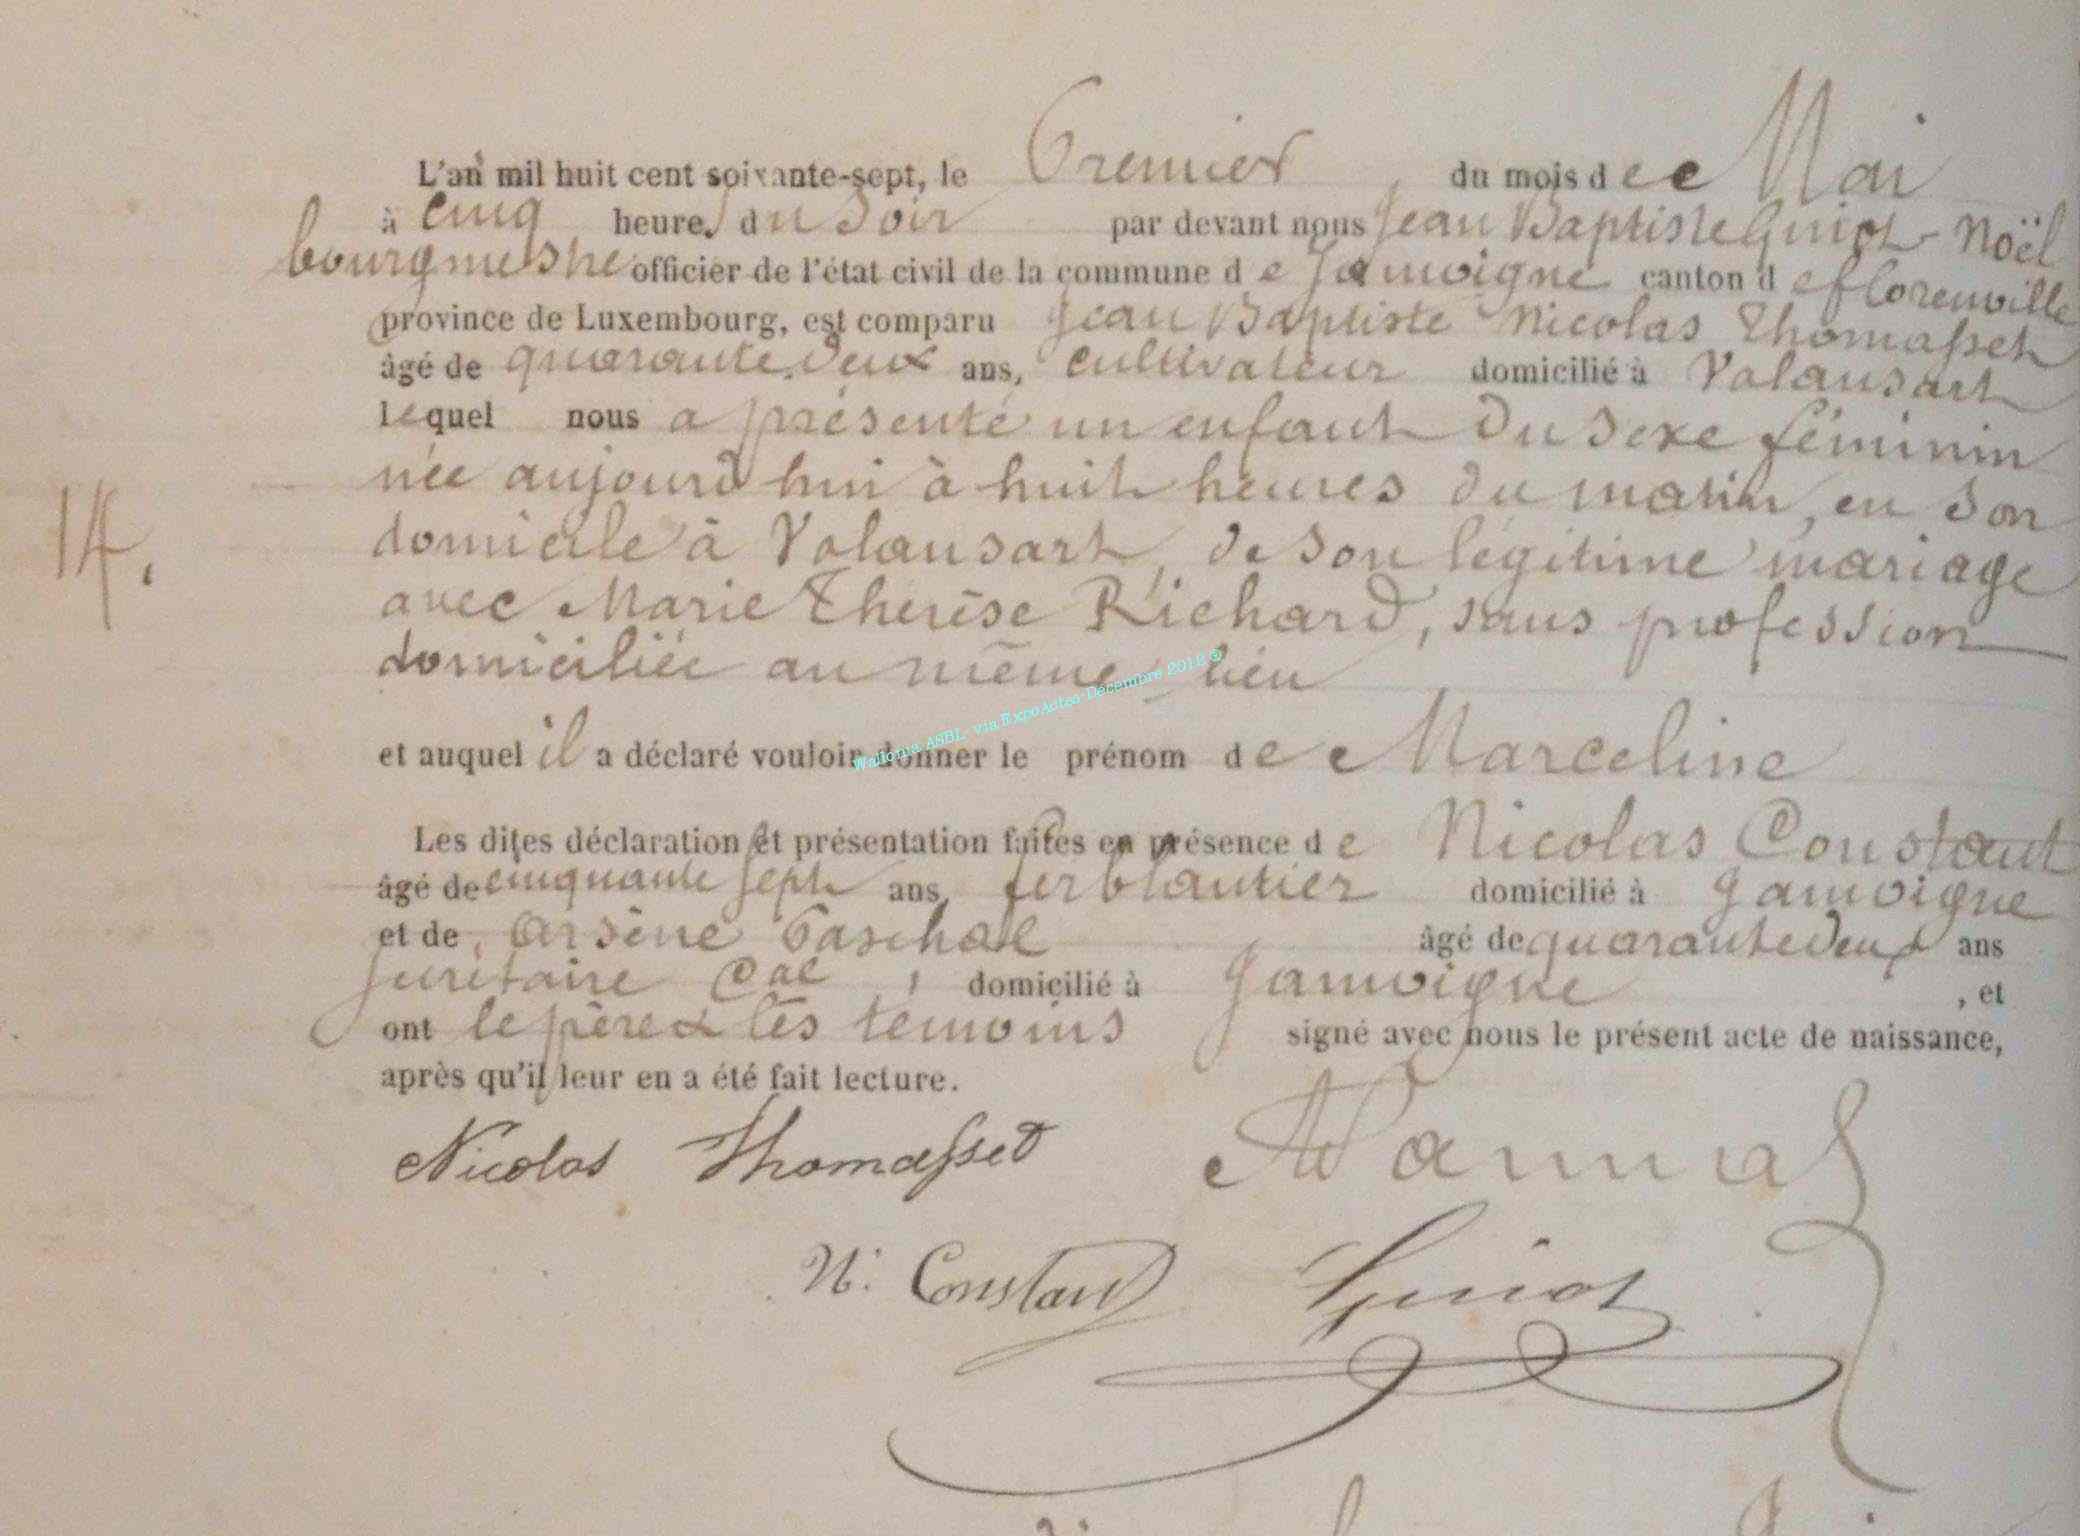 L'an mil huit cent soixante-sept, le Premier du mois de Mai
à cinq heures du soir par devant nous Jean Baptiste Guiot-Noël
bourgmestre officier de l'état civil de la commune de Jamoigne canton de florenville
province de Luxembourg, est comparu Jean Baptiste Nicolas Thomasset
âgé de quarante deux ans, cultivateur domicilié à Valansart
lequel nous a présenté un enfant du sexe féminin
née aujourd'hui à huit heures du matin, en son
14.
domicile à Valansart, de son légitime mariage
avec Marie Thérèse Richard, sans profession
domiciliée au même lieu
Wallonia ASBL- via ExpoActes-Décembre 2018 ©
et auquel il a déclaré vouloir donner le prénom de Marceline
Les dites déclaration et présentation faites en présence de Nicolas Constant
âgé de cinquante sept ans, ferblantier domicilié à Jamoigne
et de Arsène Paschal âgé de quarante deux ans
secrétaire Cal, domicilié à Jamoigne, et
ont le père & les témoins signé avec nous le présent acte de naissance,
après qu'il leur en a été fait lecture.
Nicolas Thomasset
N. Constant Guiot